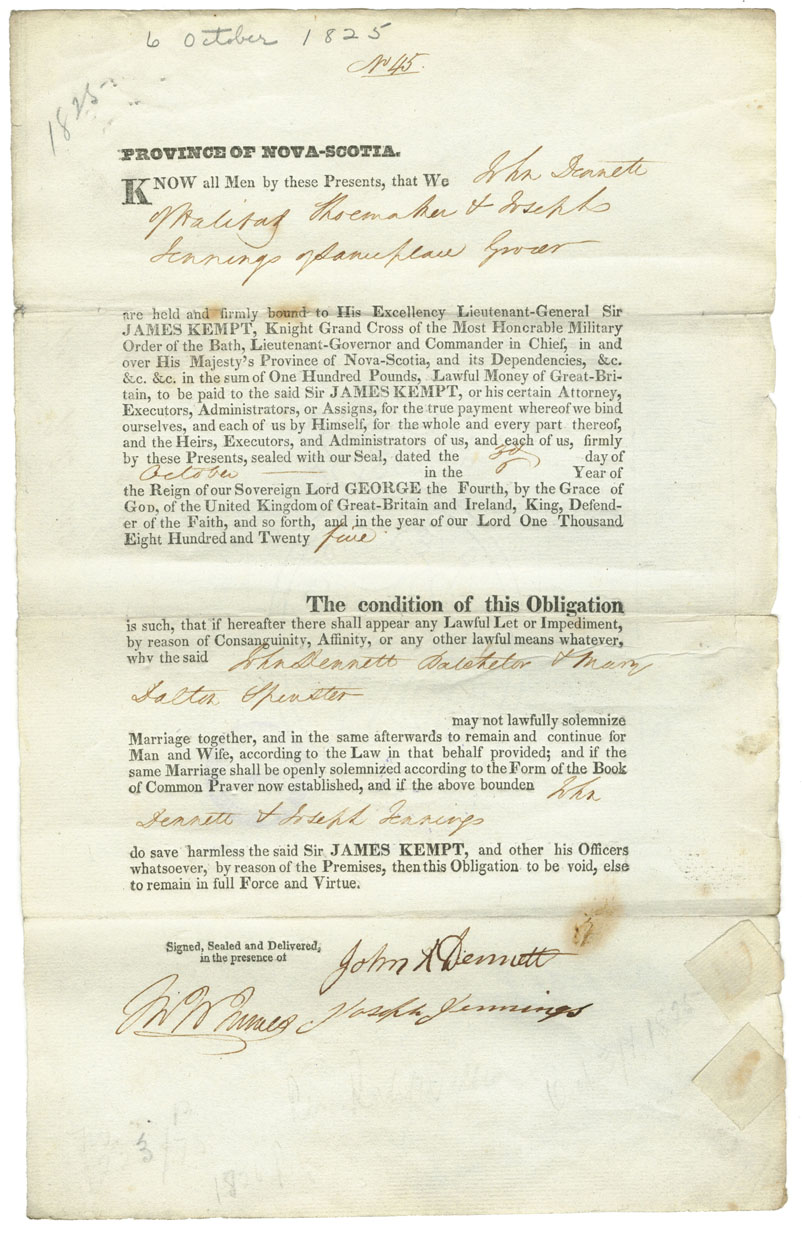 6 October 1825
No 45.
1825
PROVINCE OF NOVA-SCOTIA.
KNOW all Men by these Presents, that We John Dennett
of Halifax Shoemaker & Joseph
Jennings of Same place Grocer
are held and firmly bound to His Excellency Lieutenant-General Sir
JAMES KEMPT, Knight Grand Cross of the Most Honorable Military
Order of the Bath, Lieutenant-Governor and Commander in Chief, in and
over His Majesty's Province of Nova-Scotia, and its Dependencies, &c.
&c. &c. in the sum of One Hundred Pounds, Lawful Money of Great-Bri-
tain, to be paid to the said Sir JAMES KEMPT, or his certain Attorney,
Executors, Administrators, or Assigns, for the true payment whereof we bind
ourselves, and each of us by Himself, for the whole and every part thereof,
and the Heirs, Executors, and Administrators of us, and each of us, firmly
by these Presents, sealed with our Seal, dated the day of
October in the Year of
the Reign of our Sovereign Lord GEORGE the Fourth, by the Grace of
GOD, of the United Kingdom of Great-Britain and Ireland, King, Defend-
er of the Faith, and so forth, and in the year of our Lord One Thousand
Eight Hundred and Twenty five
The condition of this Obligation
is such, that if hereafter there shall appear any Lawful Let or Impediment,
by reason of Consanguinity, Affinity, or any other lawful means whatever,
why the said John Dennett Batchelor & Mary
Dalton Spinster
may not lawfully solemnize
Marriage together, and in the same afterwards to remain and continue for
Man and Wife, according to the Law in that behalf provided; and if the
same Marriage shall be openly solemnized according to the Form of the Book
of Common Prayer now established, and if the above bounden John
Dennett & Joseph Jennings
do save harmless the said Sir JAMES KEMPT, and other his Officers
whatsoever, by reason of the Premises, then this Obligation to be void, else
to remain in full Force and Virtue.
Signed, Sealed and Delivered,
in the presence of
John Dennett
Joseph Jennings